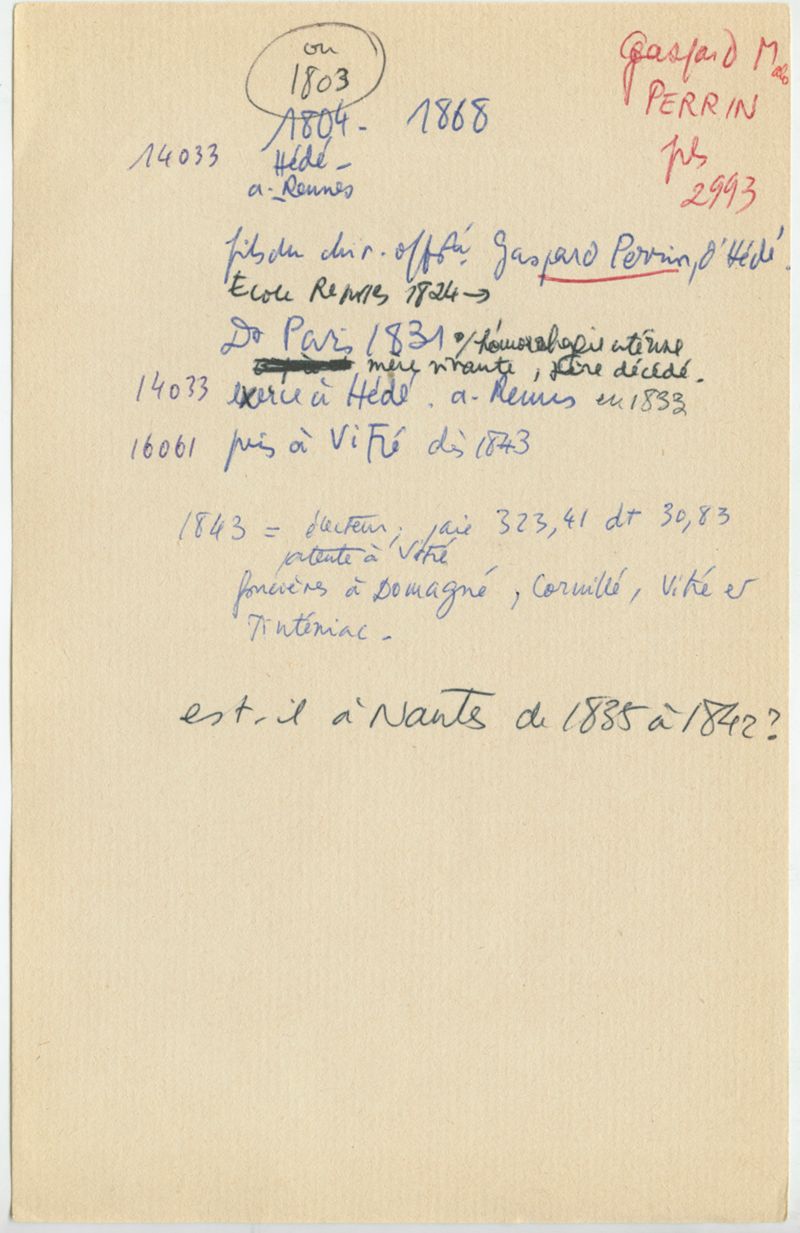 ou
1803
Gaspard Malo
PERRIN
pls
2993
1804 - 1868
14033 Hédé -
a - Rennes
fils du chir. offté Gaspard Perrin, d'Hédé.
École Rennes 1824 →
Dr Paris 1831 s/hémorrhagie utérine
mère vivante, père décédé.
14033 exerce à Hédé. a - Rennes en 1833
16061 puis à Vitré dès 1843
1843 = électeur, paie 323,41 dt 30,83
patente à Vitré
foncières à Domagné, Cornillé, Vitré et
Tinténiac.
est-il à Nantes de 1835 à 1842?